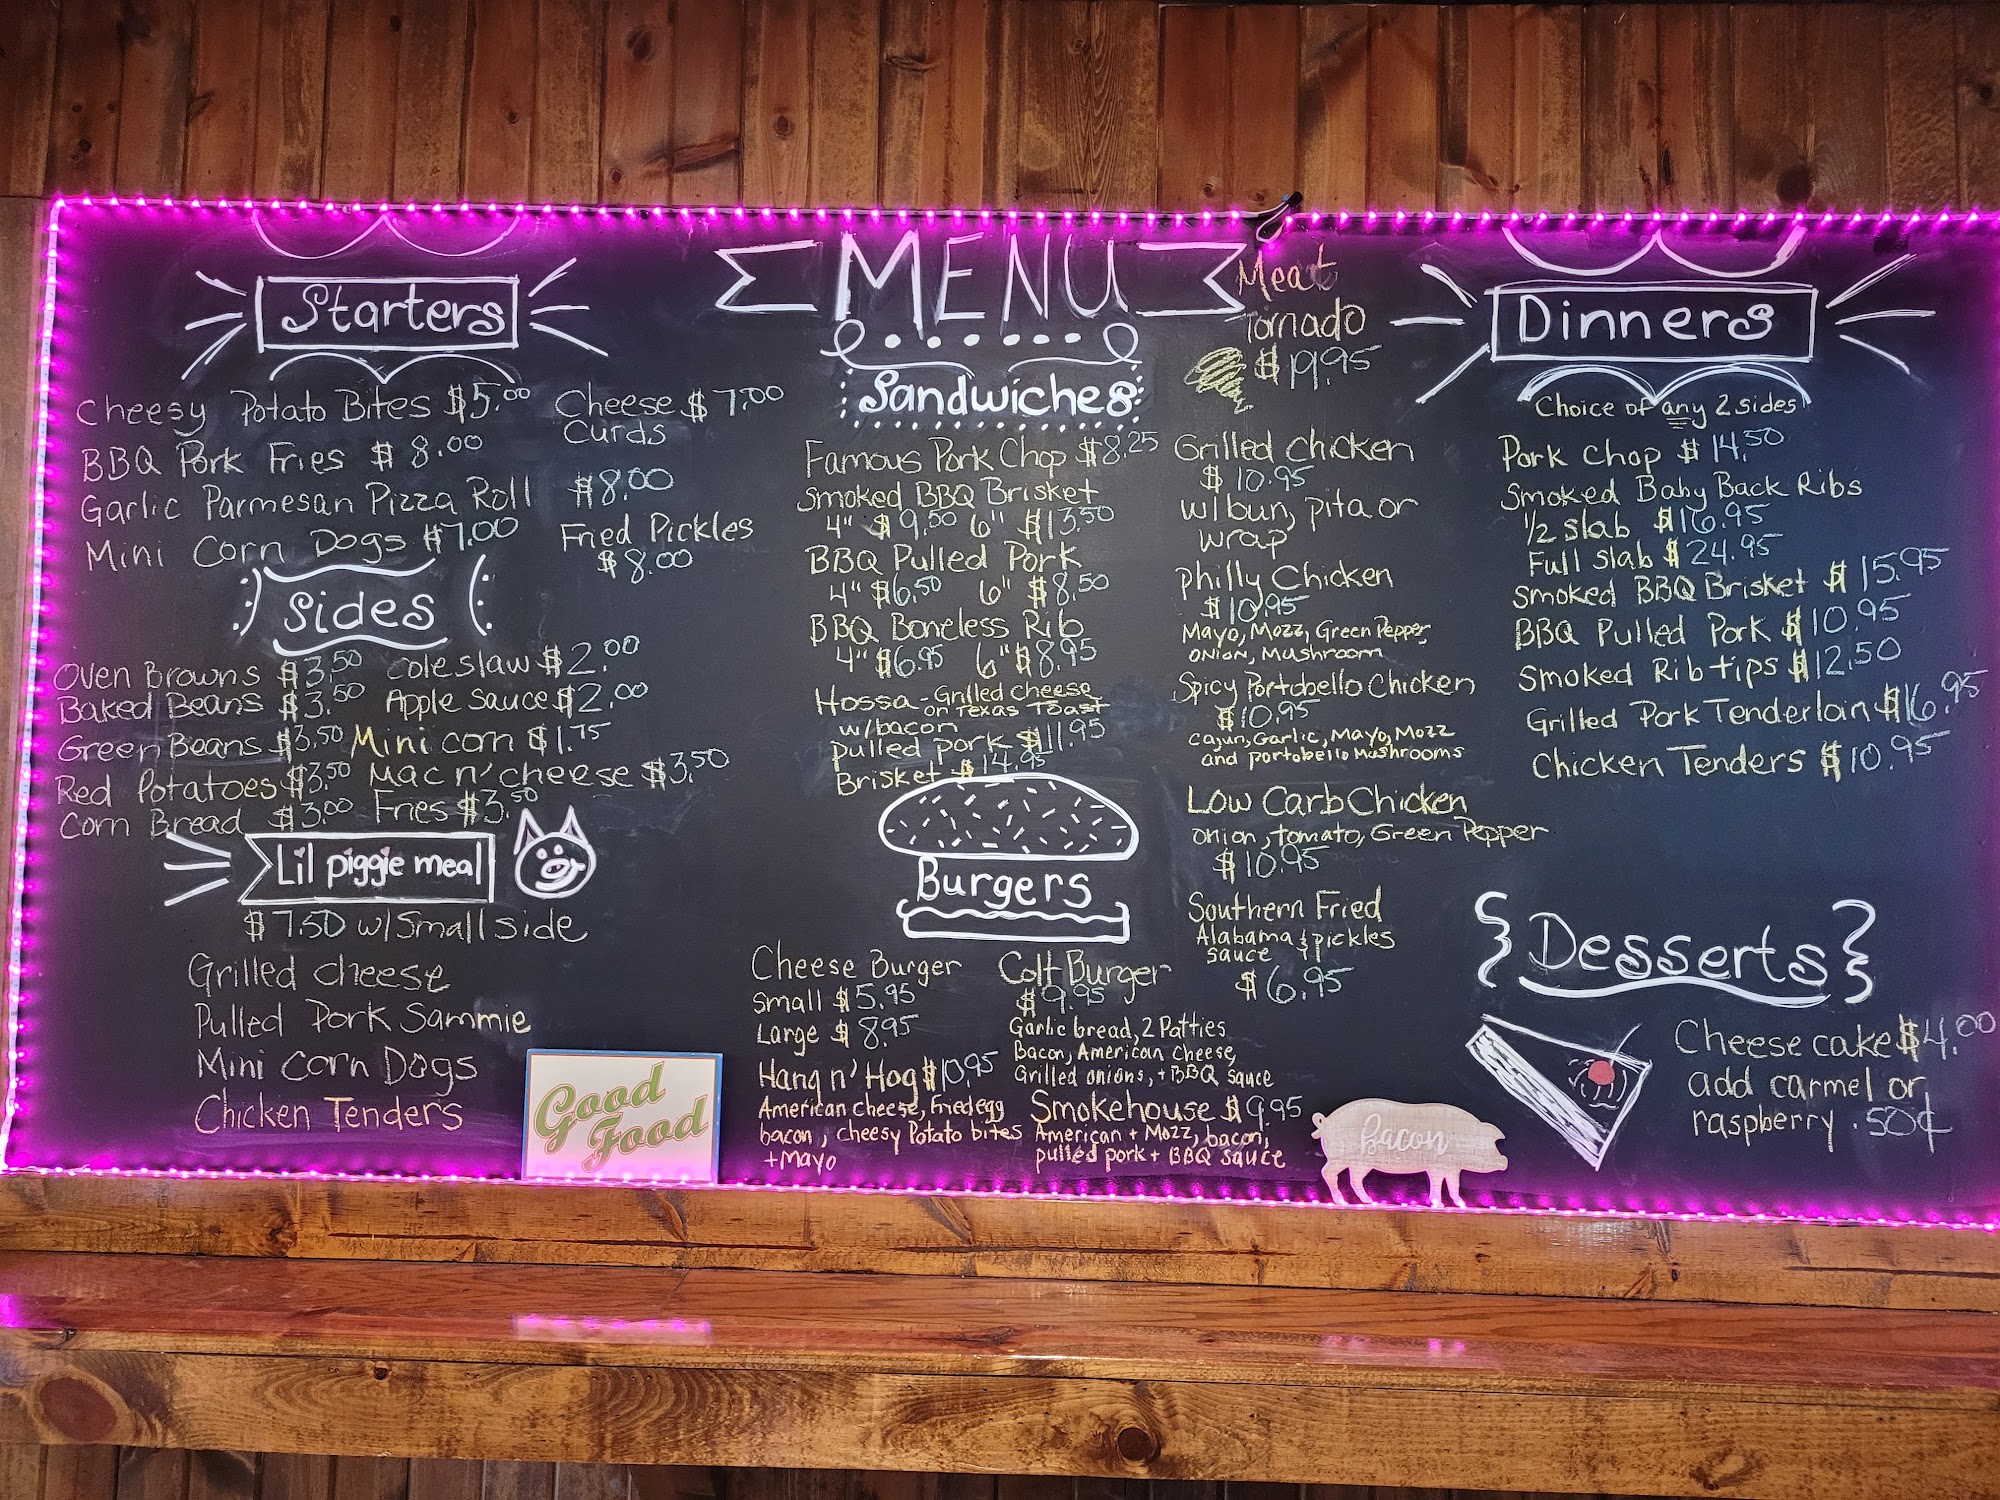 MENU
Starters
Cheesy Potato Bites $5.00
BBQ Pork Fries $8.00
Garlic Parmesan Pizza Roll $8.00
Mini Corn Dogs $7.00
Cheese $7.00
Curds
Fried Pickles
$8.00
Sides
Oven Browns $3.50
Baked Beans $3.50
Green Beans $3.50
Red Potatoes $3.50
Corn Bread $3.00
Coleslaw $2.00
Apple Sauce $2.00
Mini corn $1.75
Mac n' cheese $3.50
Fries $3.50
Lil piggie meal
$7.50 w/small side
Grilled cheese
Pulled Pork Sammie
Mini Corn Dogs
Chicken Tenders
Good
Food
Sandwiches
Famous Pork Chop $8.25
Smoked BBQ Brisket
4" $9.50 6" $13.50
BBQ Pulled Pork
4" $6.50 6" $8.50
BBQ Boneless Rib
4" $6.95 6" $8.95
Hossa - Grilled cheese
on Texas Toast
w/bacon
pulled pork $11.95
Brisket $14.95
Meat
Tornado
$19.95
Grilled Chicken
$10.95
w/bun, pita or
wrap
Philly Chicken
$10.95
Mayo, Mozz, Green Pepper
onion, Mushroom
Spicy Portobello Chicken
$10.95
Cajun, Garlic, Mayo, Mozz
and portobello Mushrooms
Low Carb Chicken
onion, tomato, Green Pepper
$10.95
Southern Fried
Alabama & pickles
sauce
$6.95
Burgers
Cheese Burger
Small $5.95
Large $8.95
Hang n' Hog $10.95
American cheese, fried egg
bacon, cheesy Potato bites
+Mayo
Colt Burger
$9.95
Garlic bread, 2 Patties
Bacon, American cheese,
Grilled onions, + BBQ sauce
Smokehouse $9.95
American + Mozz, bacon,
pulled pork + BBQ sauce
bacon
Dinners
Choice of any 2 sides
Pork Chop $14.50
Smoked Baby Back Ribs
1/2 slab $16.95
Full slab $24.95
Smoked BBQ Brisket $15.95
BBQ Pulled Pork $10.95
Smoked Rib tips $12.50
Grilled Pork Tenderloin $16.95
Chicken Tenders $10.95
Desserts
Cheese cake $4.00
add carmel or
raspberry .50¢